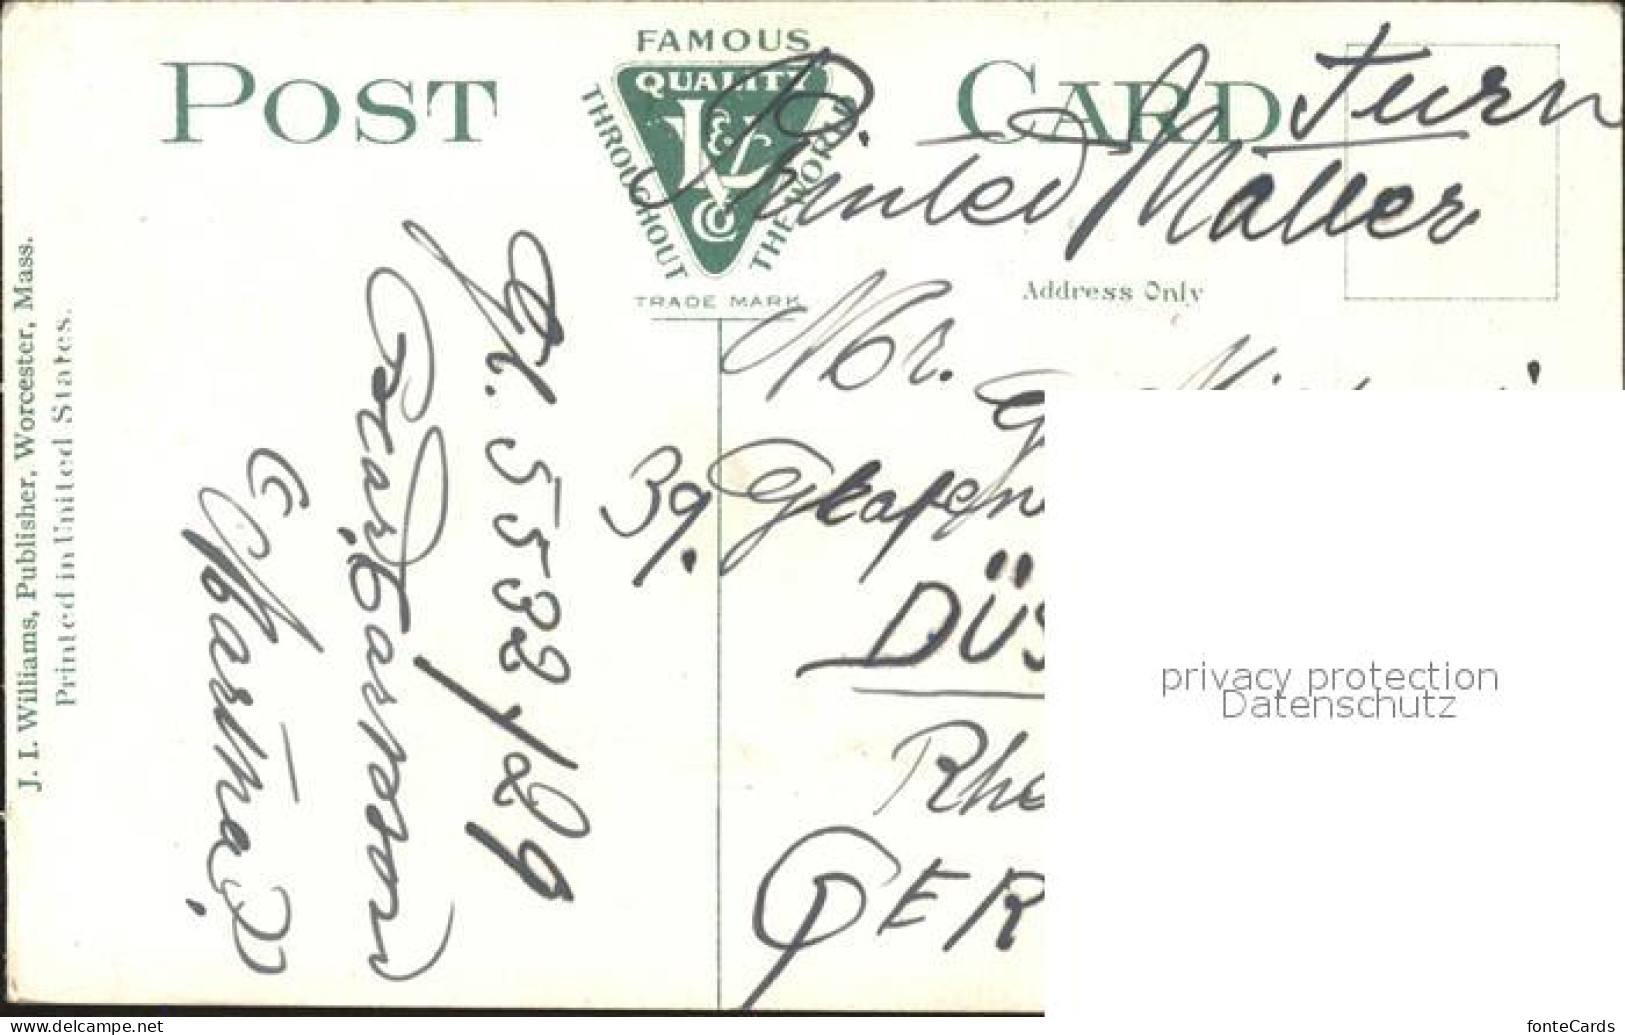 POST CARD
FAMOUS
QUALITY
THROUGHOUT
THE WORLD
& Co
TRADE MARK
Turn
Printed Matter
Address Only
J. I. Williams, Publisher, Worcester, Mass.
Printed in United States.
5532/29
"Martha"
Mr.
39.
DÜS
Rhe
GER
privacy protection
Datenschutz
www.delcampe.net
fonteCards